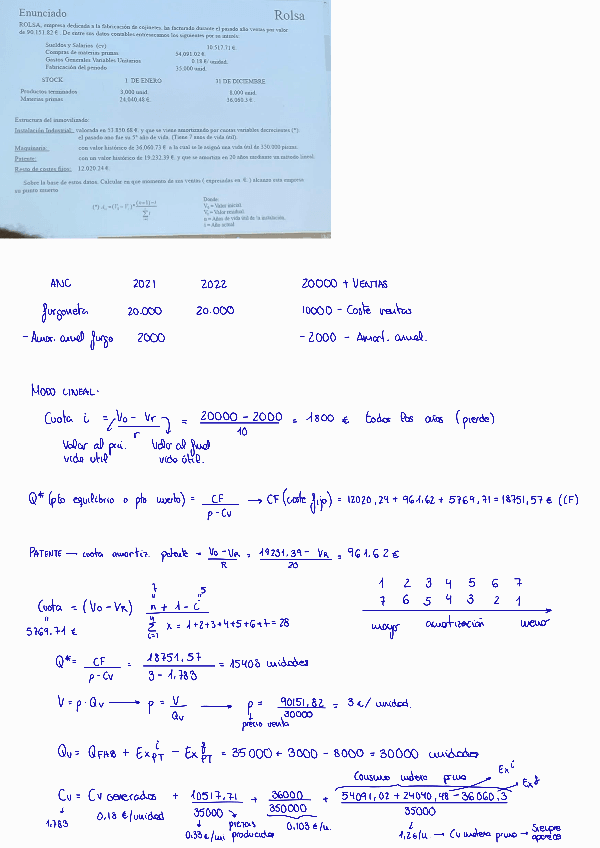 Enunciado Rolsa
ROLSA, empresa dedicada a la fabricación de cojinetes, ha facturado durante el pasado año ventas por valor
de 90.151.82 € . De entre sus datos contables entresacamos los siguientes por su interés:
Sueldos y Salarios (cv) 10.517.71 €
Compras de materias primas 54.091.02 €
Gastos Generales Variables Unitarios 0.18 €/ unidad.
Fabricación del periodo 35.000 unid.
STOCK 1 DE ENERO 31 DE DICIEMBRE
Productos terminados 3.000 unid. 8.000 unid.
Materias primas 24.040,48 €. 36.060.3 €.
Estructura del inmovilizado:
Instalación Industrial: valorada en €. y que se viene amortizando por cuotas variables decrecientes (*);
el pasado año fue su 5º año de vida. (Tiene 7 años de vida útil).
Maquinaria: con valor histórico de 36.060.73 € a la cual se le asignó una vida útil de 350.000 piezas.
Patente: con un valor histórico de 19.232.39 €. y que se amortiza en 20 años mediante un método lineal.
Resto de costes fijos: 12.020.24 €.
Sobre la base de estos datos. Calcular en que momento de sus ventas ( expresadas en €. ) alcanza esta empresa
su punto muerto
Donde:
V₀ = Valor inicial
Vᵣ = Valor residual
n = Años de vida útil de la instalación.
i = Año actual
ANC 2021 2022 20000 + VENTAS
furgoneta 20.000 20.000 10000 - Coste ventas
- Amor. anual furgo 2000 -2000 - Amort. anual.
MODO LINEAL.
Cuota i = Vo - Vr / r = 20000 - 2000 / 10 = 1800 € todos los años (pierde)
Valor al pri. Valor al final
vida util vida útil.
Q* (pto equilibrio o pto muerto) = CF / p - Cv → CF (coste fijo) = 12020,24 + 961,62 + 5769,71 = 18751,57 € (CF)
PATENTE — cuota amortiz. patente = Vo - VR / R = 19231,39 - VR / 20 = 961.62 €
1 2 3 4 5 6 7
7 6 5 4 3 2 1
mayor amortización menor
7 5
Cuota = (Vo - VR) n + 1 - i / Σ x = 1+2+3+4+5+6+7 = 28
5769.71 €
Q* = CF / p - Cv = 18751,57 / 3 - 1.783 = 15408 unidades
V = p · Qv → p = V / Qv → p = 90151,82 / 30000 = 3 €/ unidad.
precio venta
Qv = QFAB + Ex i PT - Ex f PT = 35000 + 3000 - 8000 = 30000 unidades
Consumo materia prima Ex i Ex f
Cv = Cv generados + 10517,71 / 35000 + 36000 / 350000 + 54091,02 + 24040,48 - 36060,3 / 35000
1.783 0.18 €/unidad piezas 0.103 €/u. 1,2 €/u → Cv materia prima → Siempre
0.33 €/uni producidas aparece